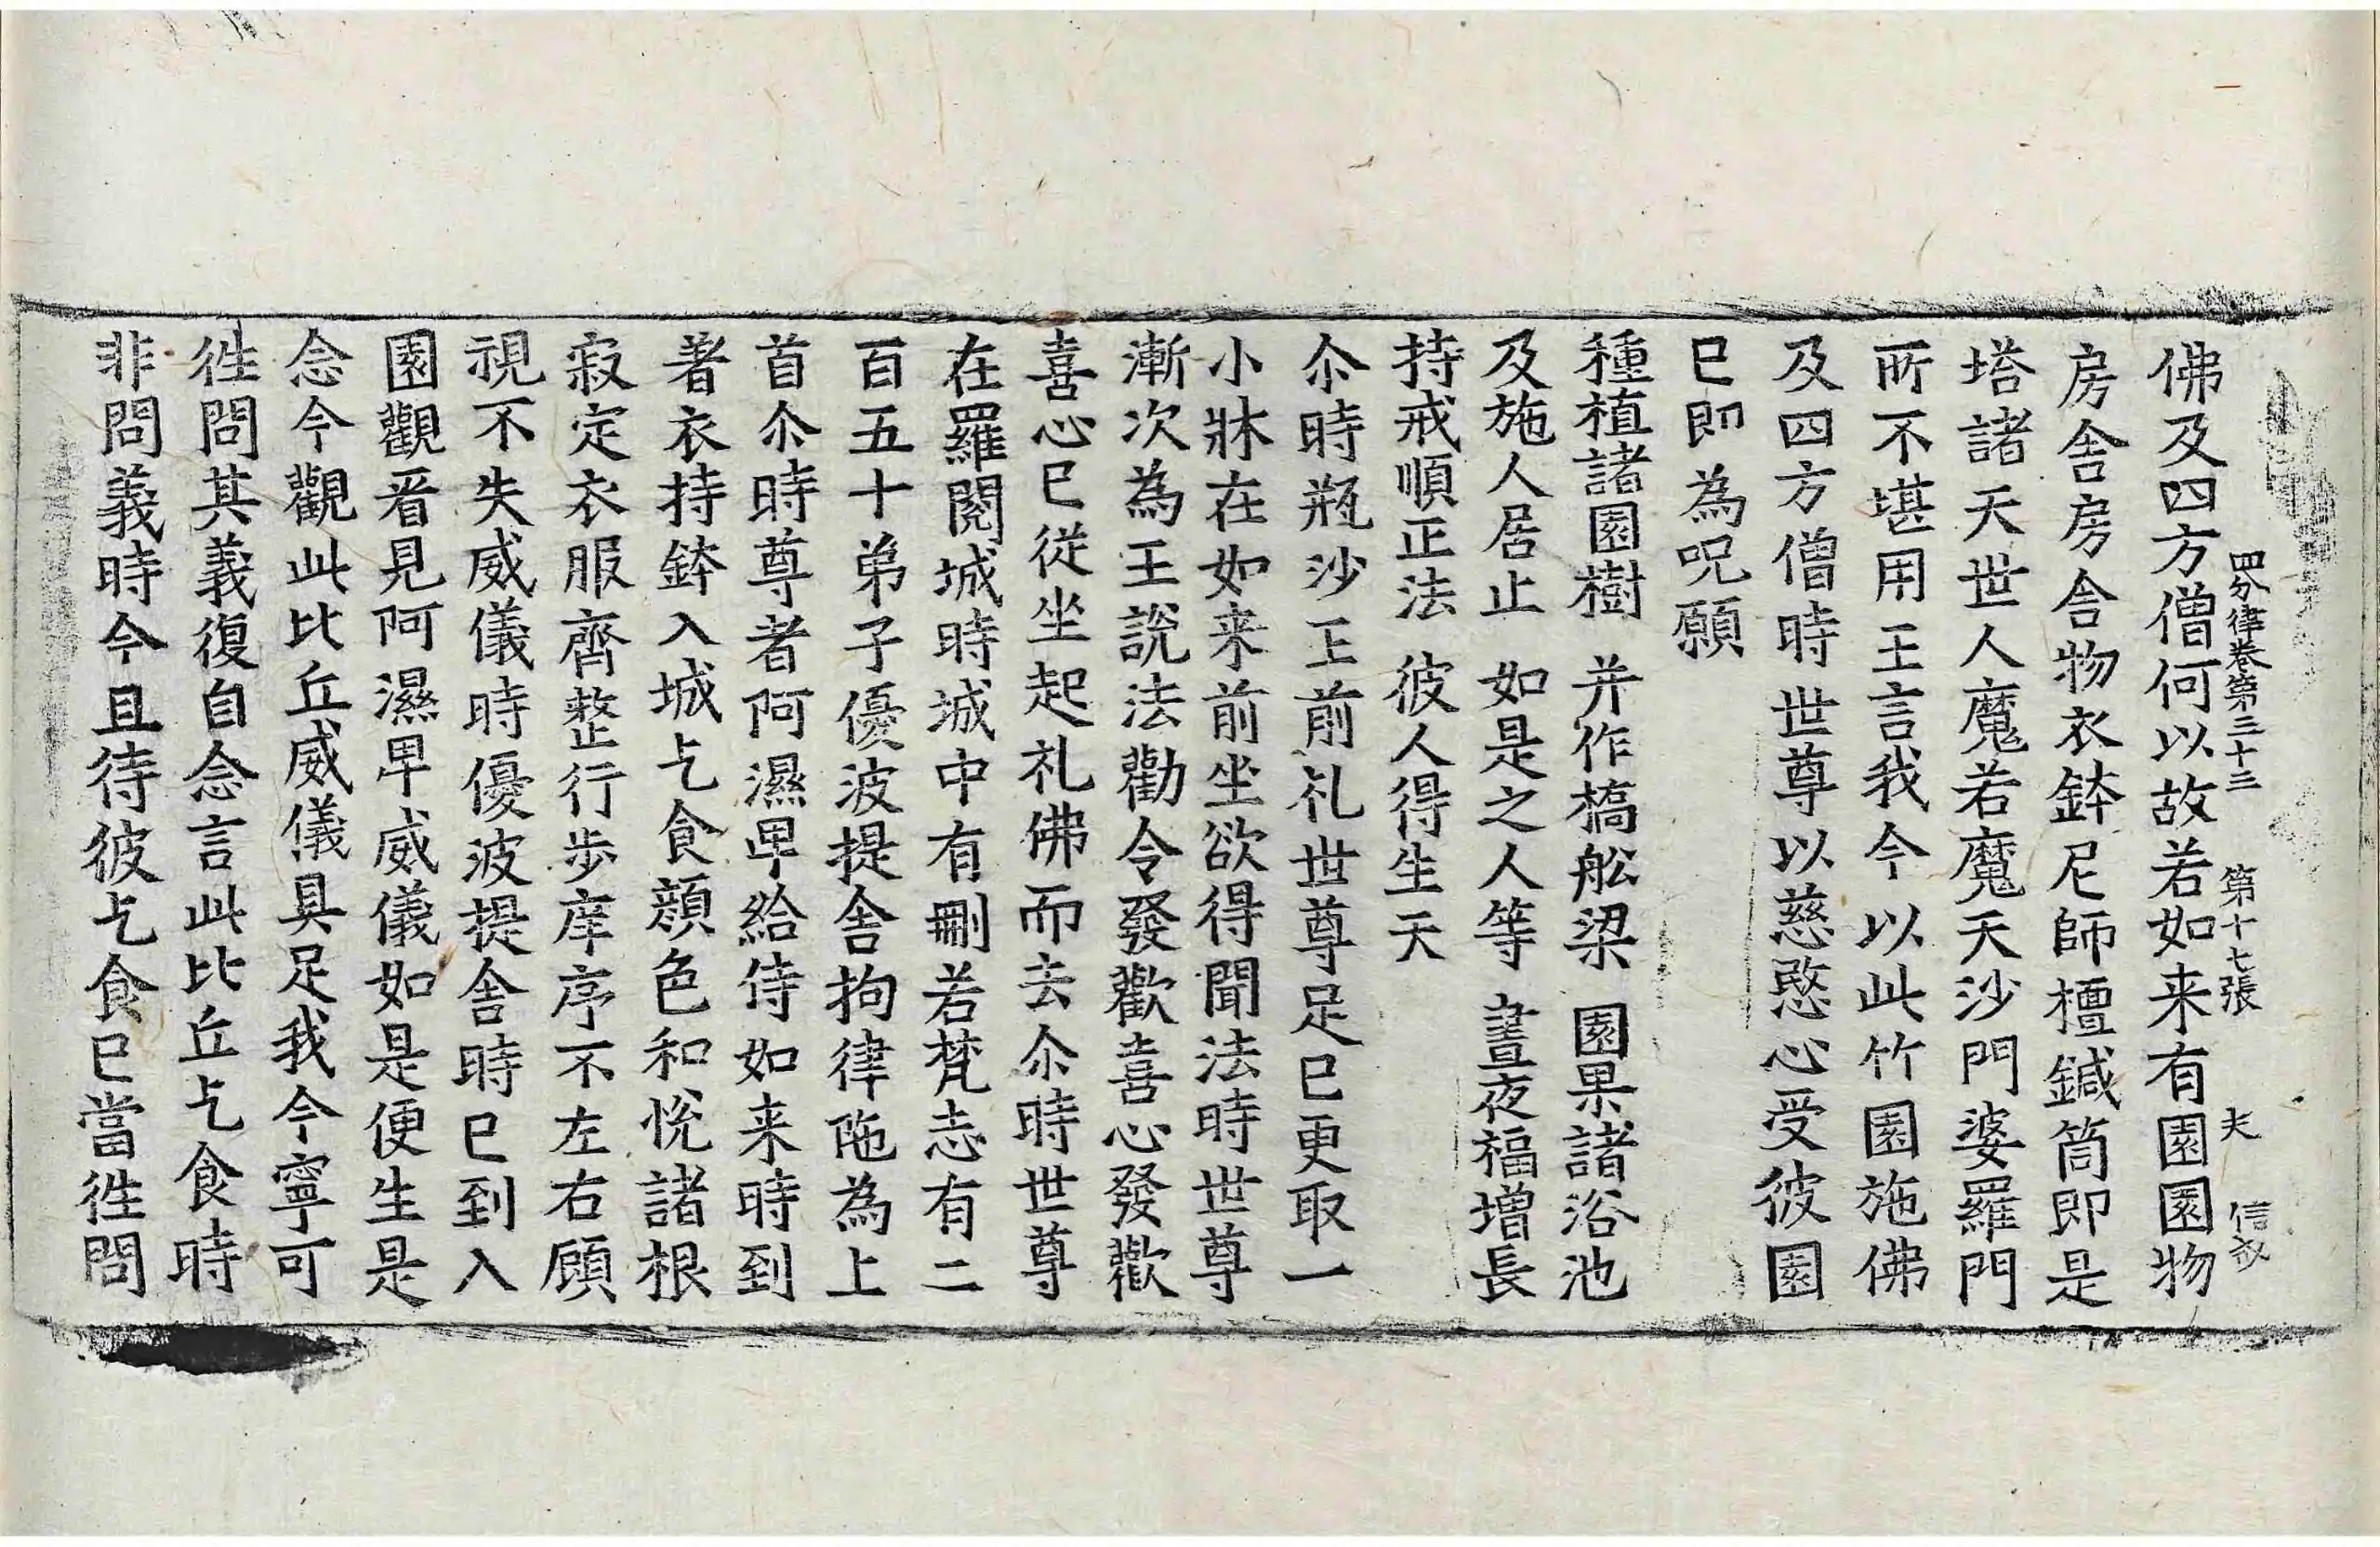 四分律卷第三十三 第十七張 夫 信
佛及四方僧何以故若如来有園園物
房舍房舍物衣鉢尼師檀鍼筒即是
塔諸天世人魔若魔天沙門婆羅門
所不堪用王言我今以此竹園施佛
及四方僧時世尊以慈愍心受彼園
已即為呪願
種植諸園樹 并作橋舩梁 園果諸浴池
及施人居止 如是之人等 晝夜福增長
持戒順正法 彼人得生天
尒時瓶沙王前礼世尊足已更取一
小牀在如来前坐欲得聞法時世尊
漸次為王說法勸令發歡喜心發歡
喜心已從坐起礼佛而去尒時世尊
在羅閱城時城中有刪若梵志有二
百五十弟子優波提舍拘律陁為上
首尒時尊者阿濕卑給侍如来時到
著衣持鉢入城乞食顔色和恱諸根
寂定衣服齊整行步庠序不左右顧
視不失威儀時優波提舍時已到入
園觀看見阿濕卑威儀如是便生是
念今觀此比丘威儀具足我今寧可
徃問其義復自念言此比丘乞食時
非問義時今且待彼乞食已當徃問